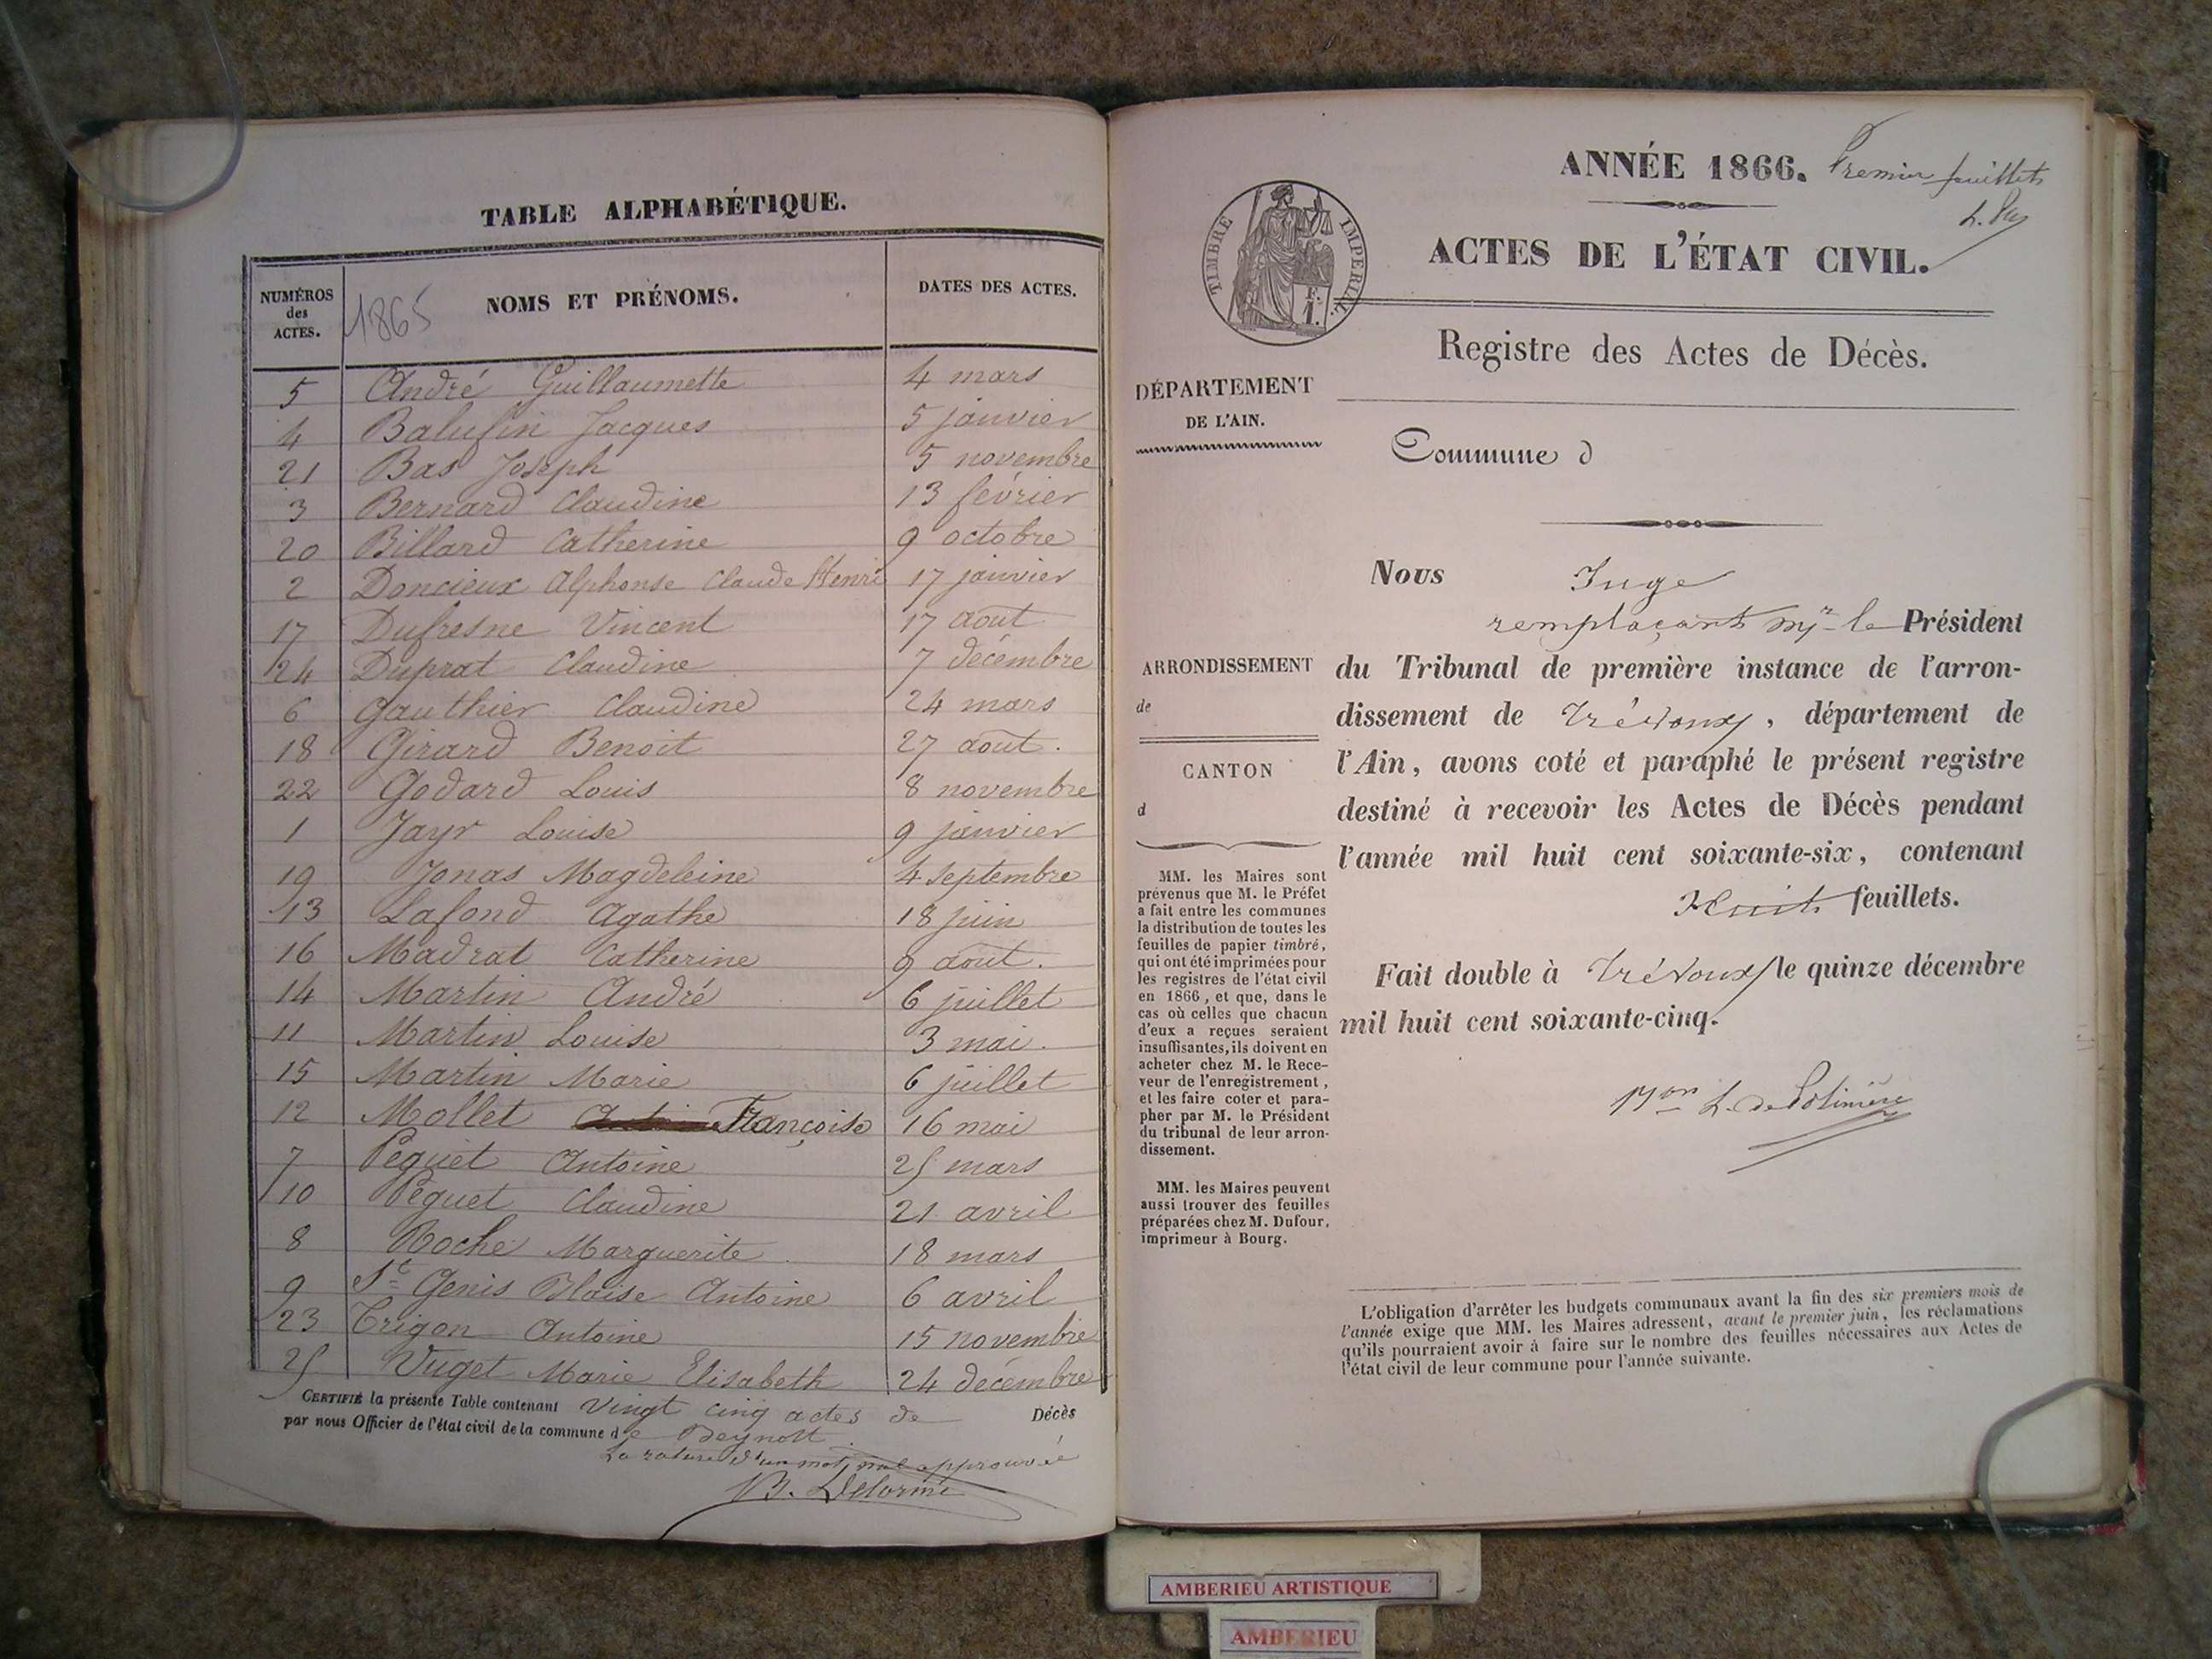 TABLE ALPHABÉTIQUE.
NUMÉROS des ACTES. 1865 NOMS ET PRÉNOMS. DATES DES ACTES.
5 André Guillaumette 4 mars
4 Balufin Jacques 5 janvier
21 Bas Joseph 5 novembre
3 Bernard Claudine 13 février
20 Billard Catherine 9 octobre
2 Doncieux Alphonse Claude Henri 17 janvier
17 Dufresne Vincent 17 aout
24 Duprat Claudine 7 décembre
6 Gauthier Claudine 24 mars
18 Girard Benoit 27 aout.
22 Godard Louis 8 novembre
1 Jayr Louise 9 janvier
19 Jonas Magdeleine 4 septembre
13 Lafond Agathe 18 juin
16 Madrat Catherine 9 aout.
14 Martin André 6 juillet
11 Martin Louise 3 mai.
15 Martin Marie 6 juillet
12 Mollet Françoise 16 mai
7 Peguet Antoine 25 mars
10 Peguet Claudine 21 avril
8 Roche Marguerite 18 mars
9 St Genis Blaise Antoine 6 avril
23 Trigon Antoine 15 novembre
25 Vuget Marie Elisabeth 24 decembre
CERTIFIÉ la présente Table contenant Vingt cinq actes de Décès
par nous Officier de l'état civil de la commune de Beynost
La rature d'un mot nul approuvée
B. Delorme
ANNÉE 1866. Premier feuillet
ACTES DE L'ÉTAT CIVIL.
TIMBRE IMPERIAL.
Registre des Actes de Décès.
DÉPARTEMENT
DE L'AIN.
ARRONDISSEMENT
de
CANTON
d
MM. les Maires sont
prévenus que M. le Préfet
a fait entre les communes
la distribution de toutes les
feuilles de papier timbré,
qui ont été imprimées pour
les registres de l'état civil
en 1866, et que, dans le
cas où celles que chacun
d'eux a reçues seraient
insuffisantes, ils doivent en
acheter chez M. le Rece-
veur de l'enregistrement,
et les faire coter et para-
pher par M. le Président
du tribunal de leur arron-
dissement.
MM. les Maires peuvent
aussi trouver des feuilles
préparées chez M. Dufour,
imprimeur à Bourg.
Commune d
Nous Juge
remplaçant Mr le Président
du Tribunal de première instance de l'arron-
dissement de Trévoux, département de
l'Ain, avons coté et paraphé le présent registre
destiné à recevoir les Actes de Décès pendant
l'année mil huit cent soixante-six, contenant
Huit feuillets.
Fait double à Trévoux le quinze décembre
mil huit cent soixante-cinq.
L'obligation d'arrêter les budgets communaux avant la fin des six premiers mois de
l'année exige que MM. les Maires adressent, avant le premier juin, les réclamations
qu'ils pourraient avoir à faire sur le nombre des feuilles nécessaires aux Actes de
l'état civil de leur commune pour l'année suivante.
AMBERIEU ARTISTIQUE
AMBERIEU